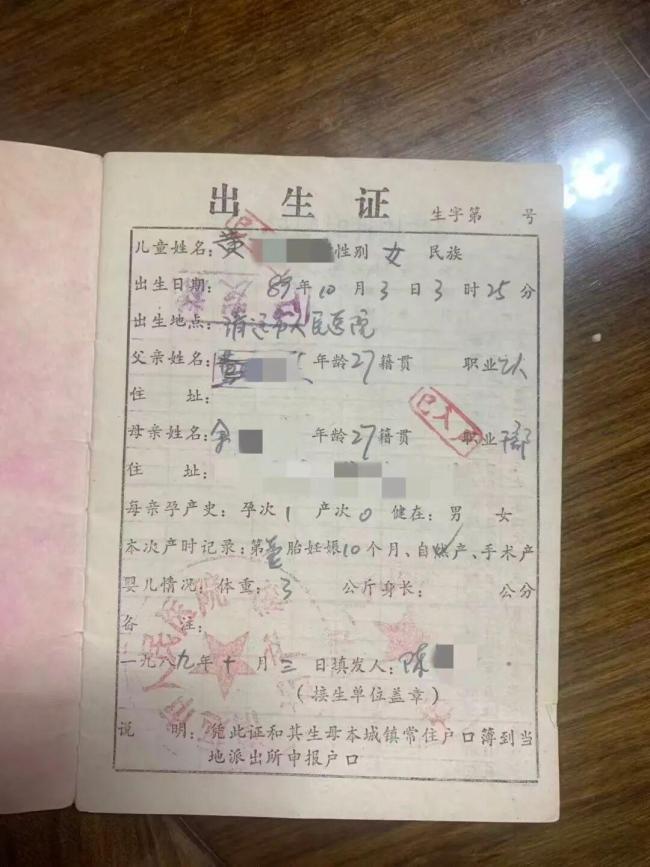 出生证
生字第 号
儿童姓名:黄 性别 女 民族
出生日期: 89年10月3日3时25分
出生地点:清远市人民医院
父亲姓名: 年龄27籍贯 职业
住 址:
已入户
母亲姓名:余 年龄27籍贯 职业干部
住 址:
每亲孕产史:孕次1 产次0 健在:男 女
本次产时记录:第壹胎妊娠10个月、自然产、手术产
婴儿情况:体重:3 公斤身长: 公分
备 注:
一九八九年十月三日填发人:陈
(接生单位盖章)
说 明:凭此证和其生母本城镇常住户口簿到当
地派出所申报户口